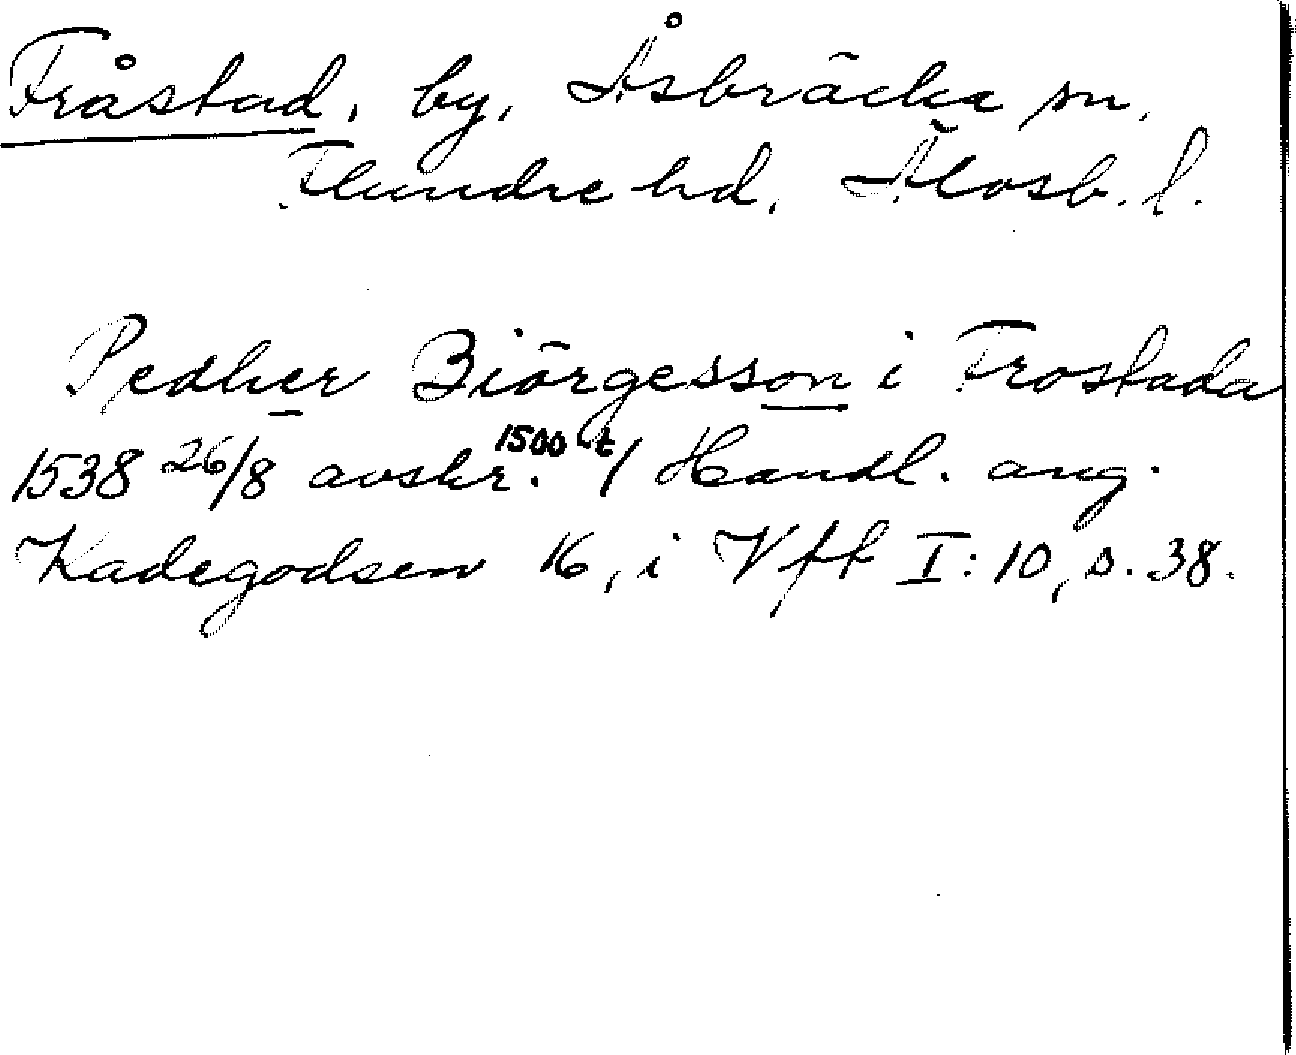 Fråstad, by, Åsbräcka sn,
Flundre hd, Älvsb. l.
Pedher Biörgesson i Frostada
1538 26/8 avskr. 1500 t / Handl. ang.
Kadegodsen 16, i Vfft I: 10, s. 38.